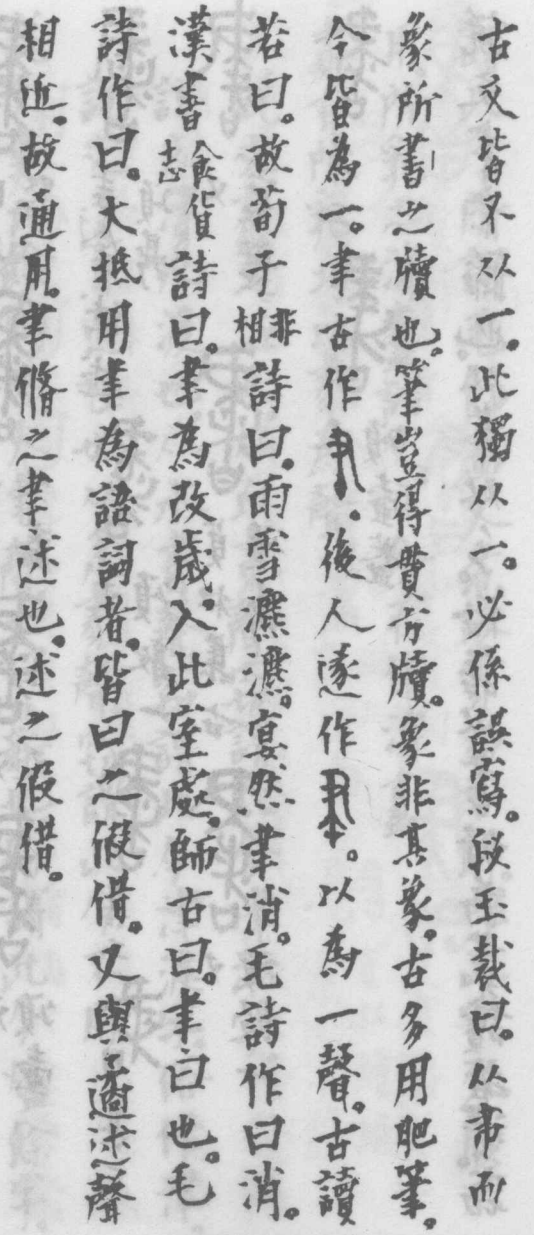 古文皆不从一。此獨从一。必係誤寫。段玉裁曰。从帇而
象所書之牘也。筆豈得貫方牘。象非其象。古多用肥筆。
今皆為一。聿古作。後人遂作。以為一聲。古讀
若曰。故荀子非相詩曰。雨雪瀌瀌。宴然聿消。毛詩作曰消。
漢書食貨志詩曰。聿為改歲。入此室處。師古曰。聿曰也。毛
詩作曰。大抵用聿為語詞者。皆曰之假借。又與遹述聲
相近。故通用。聿脩之聿。述也。述之假借。